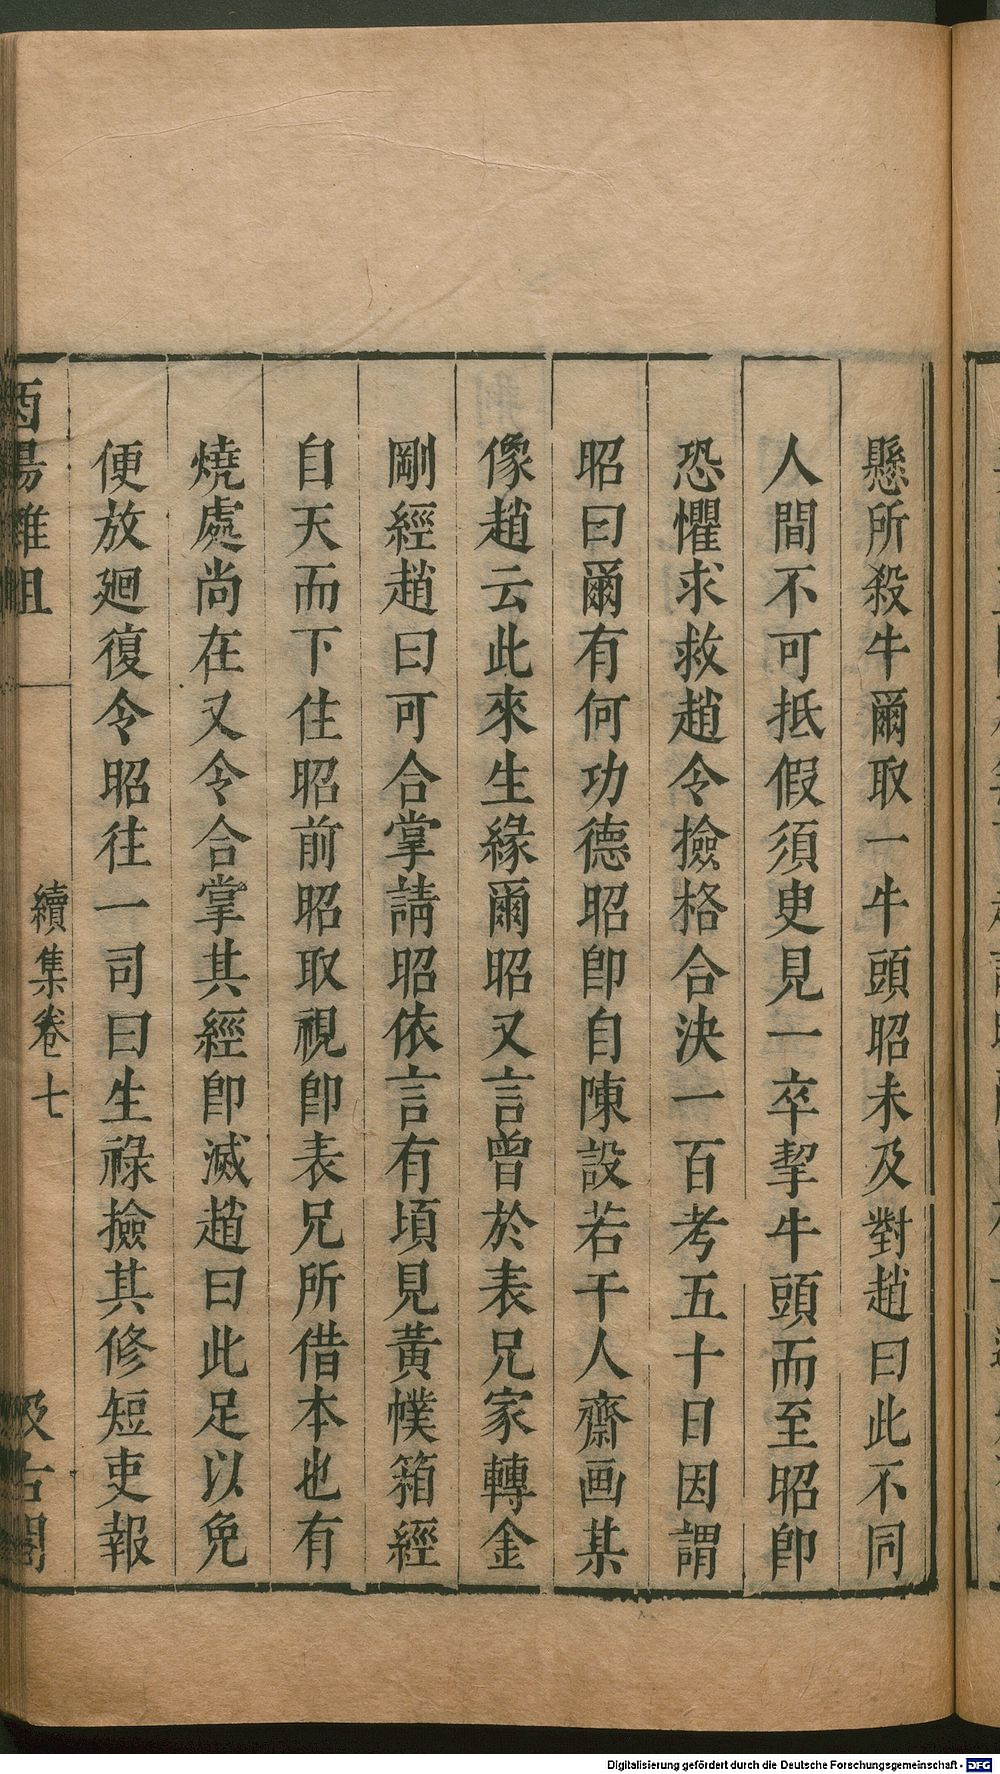 懸所殺牛爾取一牛頭昭未及對趙曰此不同
人間不可抵假須臾見一卒挈牛頭而至昭卽
恐懼求救趙令撿格合決一百考五十日因謂
昭曰爾有何功德昭卽自陳設若干人齋画某
像趙云此來生緣爾昭又言曾於表兄家轉金
剛經趙曰可合掌請昭依言有頃見黃幞箱經
自天而下住昭前昭取視卽表兄所借本也有
燒處尚在又令合掌其經卽滅趙曰此足以免
便放廻復令昭往一司曰生祿撿其修短吏報
酉陽雜俎
續集卷七
汲古閣
Digitalisierung gefördert durch die Deutsche Forschungsgemeinschaft - DFG